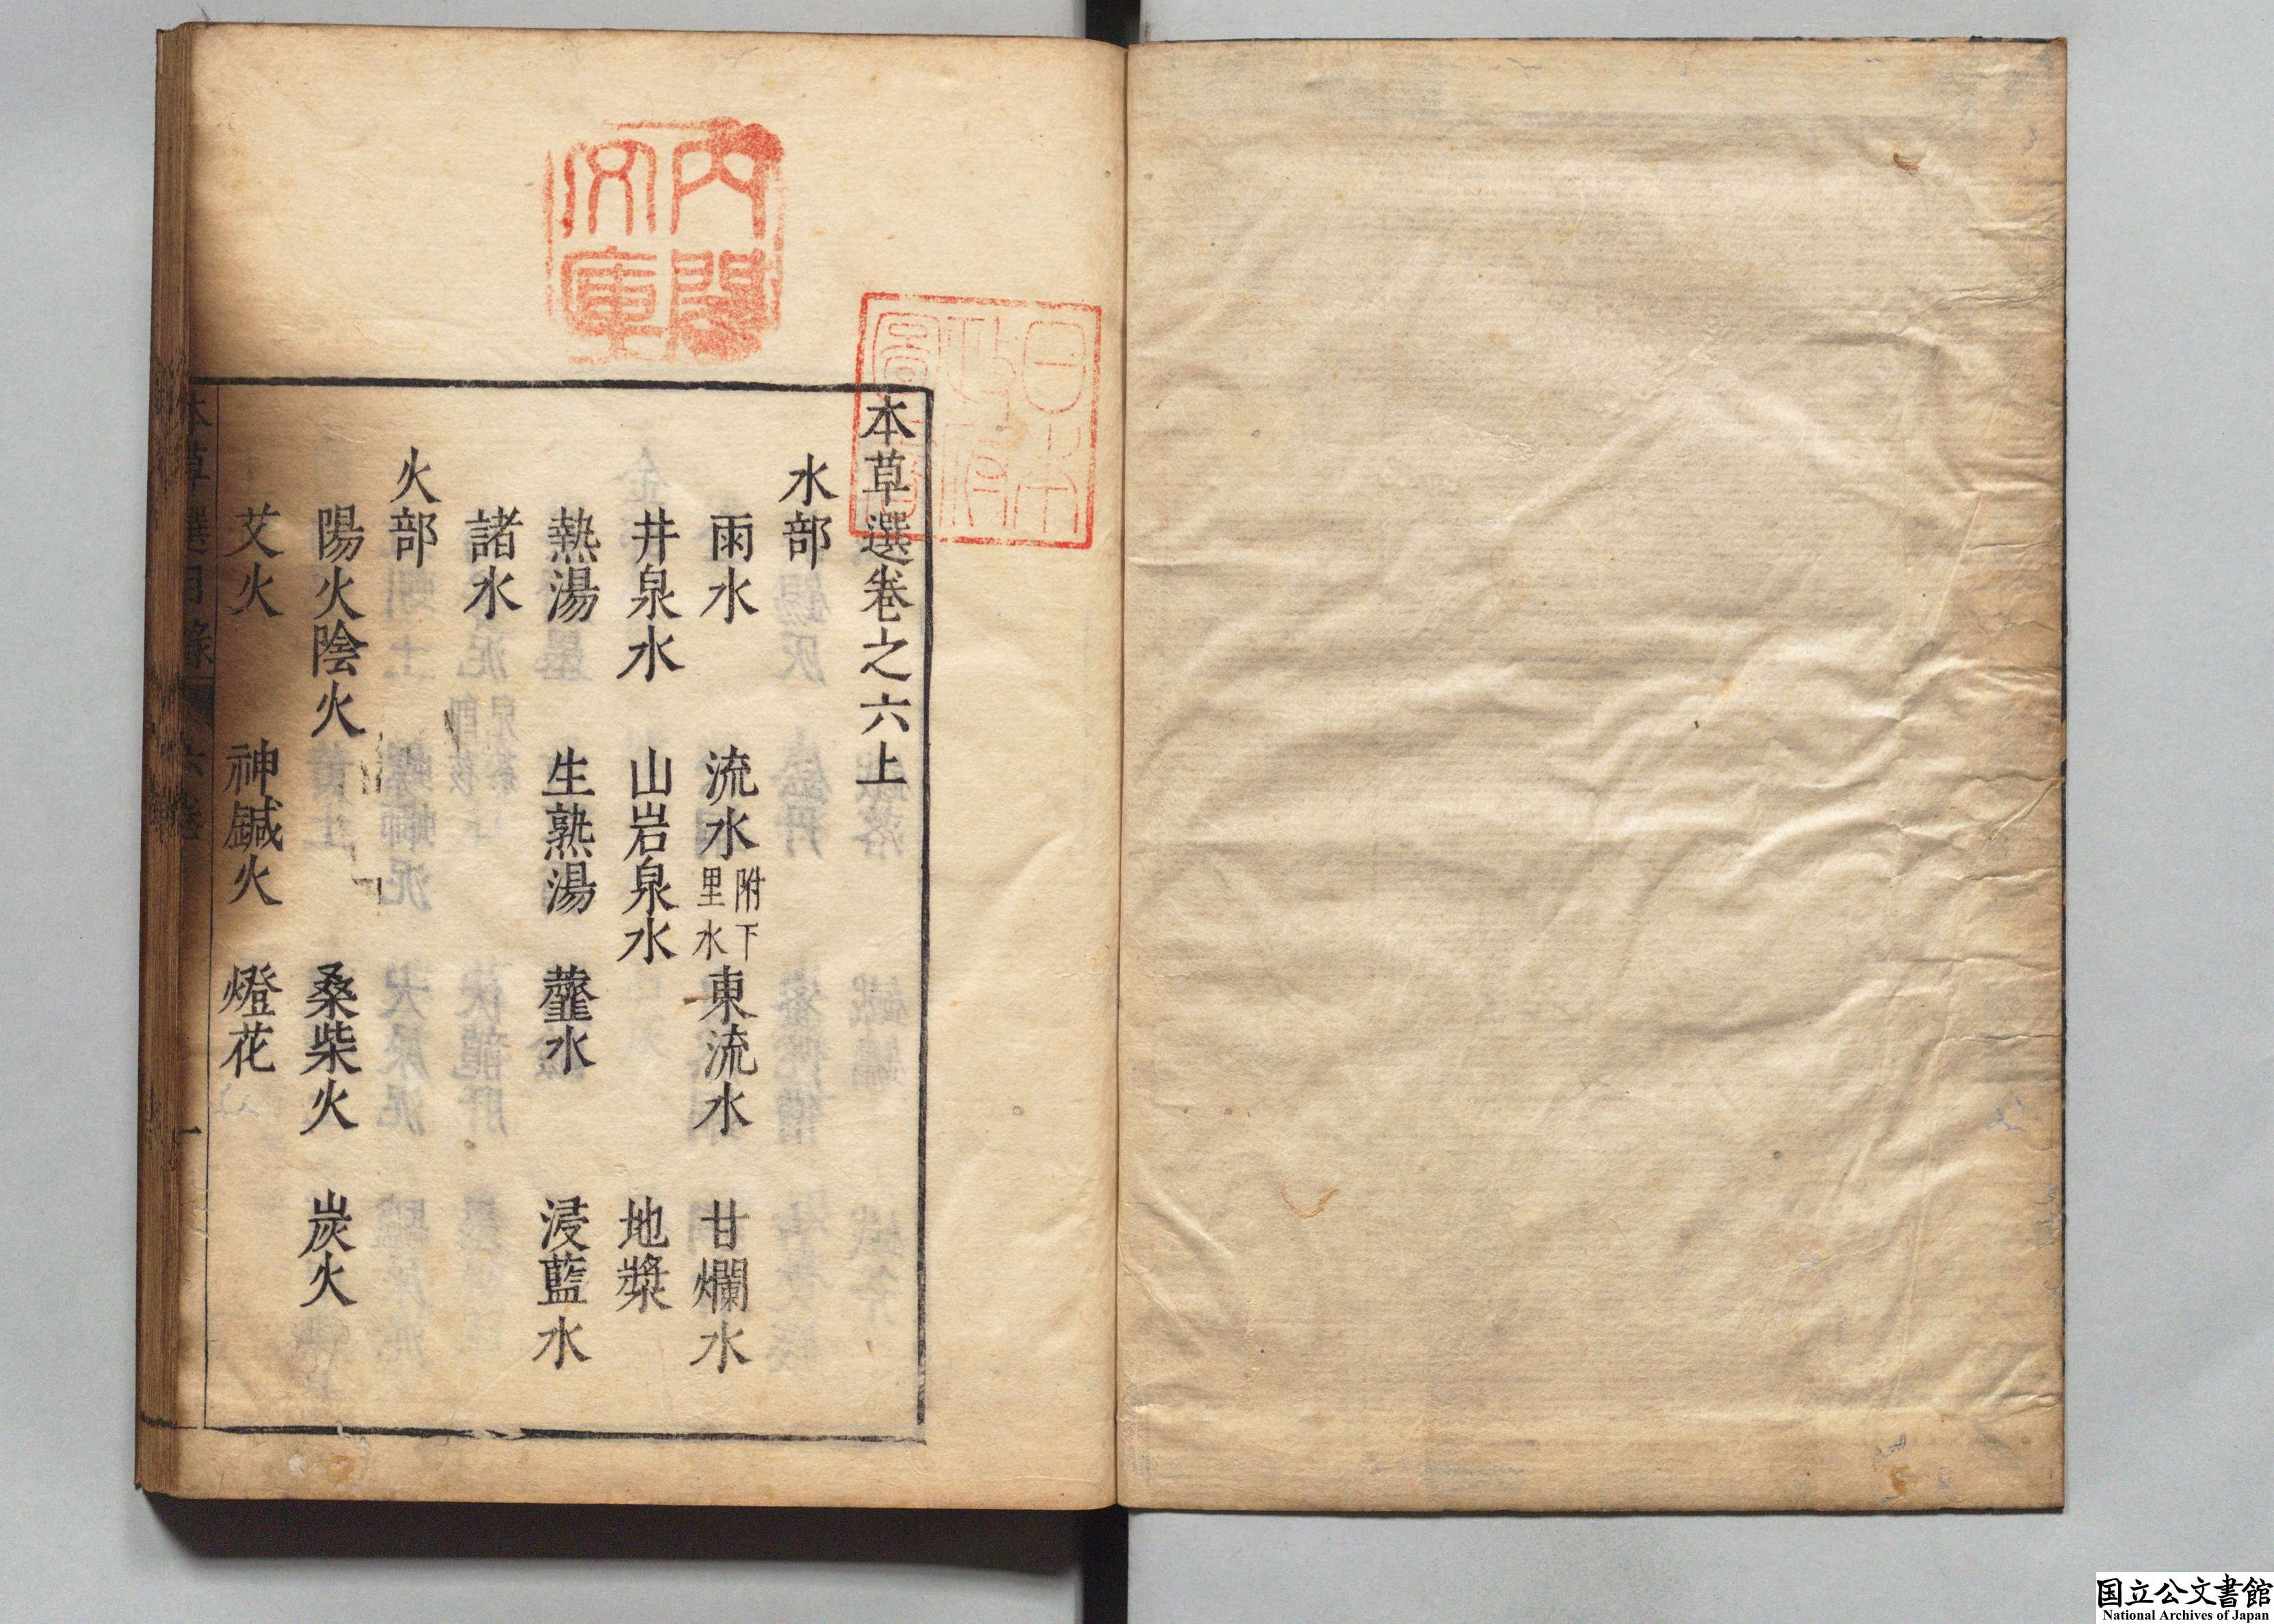 本草選卷之六上
水部
雨水 流水附下里水 東流水 甘爛水
井泉水 山岩泉水 地漿
熱湯 生熟湯 虀水 浸藍水
諸水
火部
陽火陰火 桑柴火 炭火
艾火 神鍼火 燈花
本草選目錄 六卷 一
內閣文庫
日本政府圖書
国立公文書館
National Archives of Japan